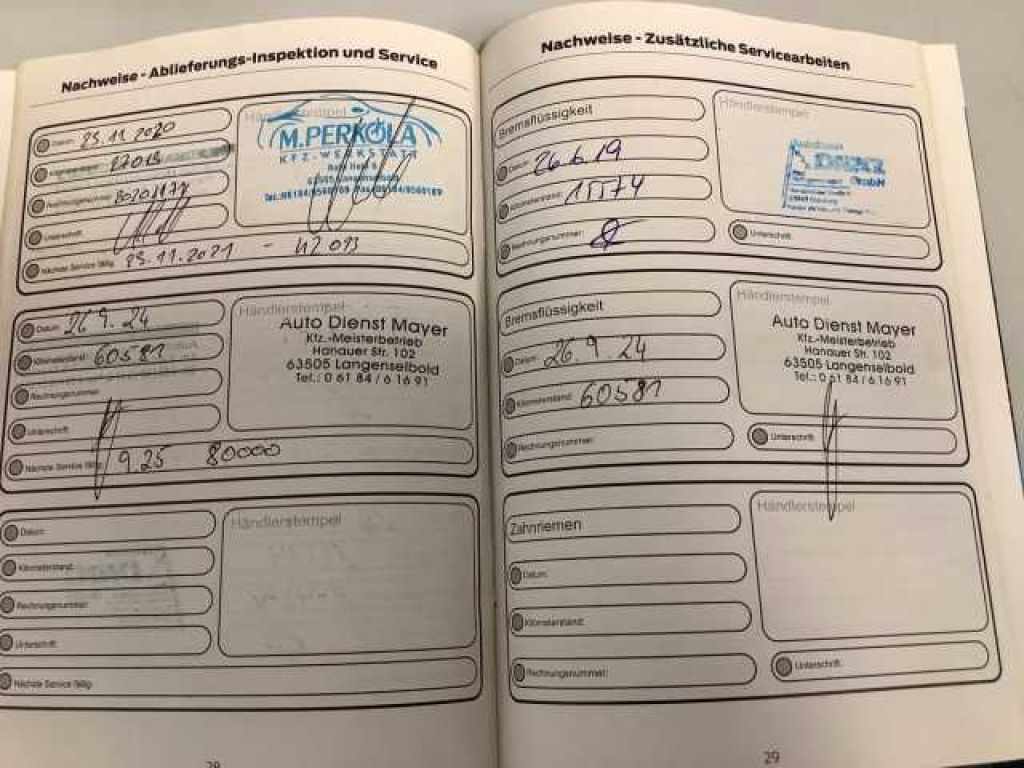 Nachweise - Ablieferungs-Inspektion und Service
Datum: 23.11.2020
Kilometerstand: 27013
Rechnungsnummer:
Unterschrift:
Nächste Service fällig: 23.11.2021 - 42 013
Händlerstempel
M.PERKOLA
KFZ-WERKSTATT
63505 Langenselbold
Datum: 26 9. 24
Kilometerstand: 60581
Rechnungsnummer:
Unterschrift:
Nächste Service fällig: 9.25 80000
Händlerstempel
Auto Dienst Mayer
Kfz.-Meisterbetrieb
Hanauer Str. 102
63505 Langenselbold
Tel.: 0 61 84 / 6 16 91
Datum:
Kilometerstand:
Rechnungsnummer:
Unterschrift:
Nächste Service fällig:
Händlerstempel
28
Nachweise - Zusätzliche Servicearbeiten
Bremsflüssigkeit
Datum: 26.6.19
Kilometerstand: 15574
Rechnungsnummer:
Händlerstempel
GmbH
Unterschrift:
Bremsflüssigkeit
Datum: 26.9.24
Kilometerstand: 60581
Rechnungsnummer:
Händlerstempel
Auto Dienst Mayer
Kfz.-Meisterbetrieb
Hanauer Str. 102
63505 Langenselbold
Tel.: 0 61 84 / 6 16 91
Unterschrift:
Zahnriemen
Datum:
Kilometerstand:
Rechnungsnummer:
Händlerstempel
Unterschrift:
29